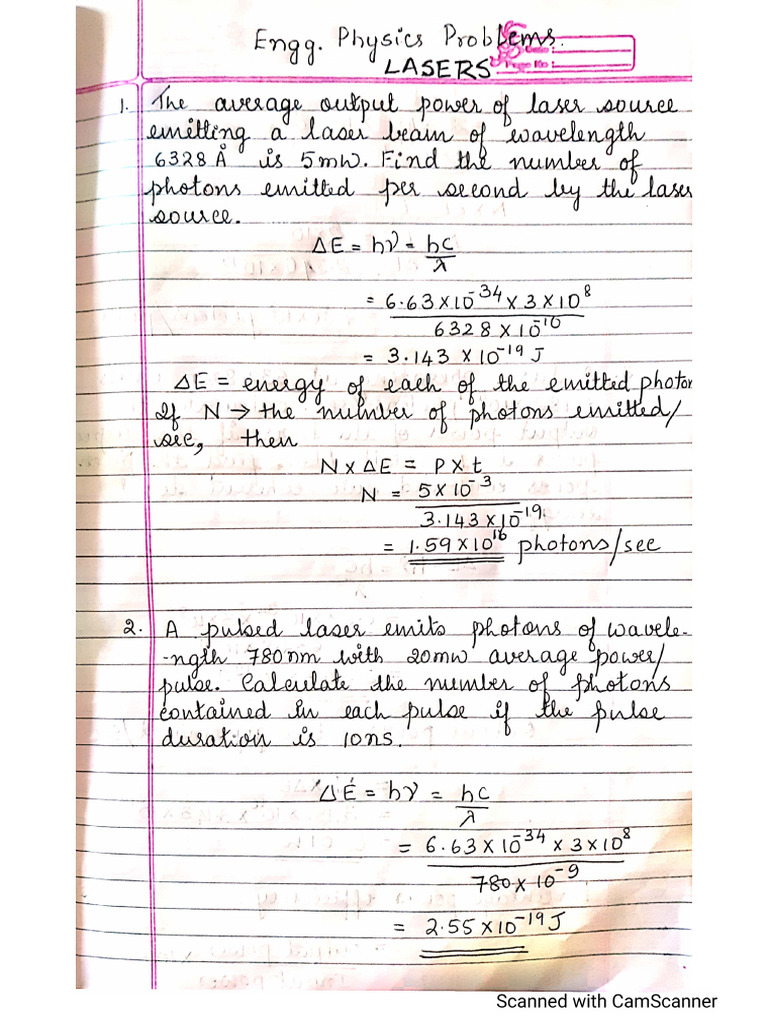 Engg. Physics Problems.
LASERS
1. The average output power of laser source
emitting a laser beam of wavelength
6328 Å is 5mW. Find the number of
photons emitted per second by the laser
source.
ΔE = hν = hc/λ
= 6.63×10⁻³⁴ × 3×10⁸
6328 × 10⁻¹⁰
= 3.143 × 10⁻¹⁹ J
ΔE = energy of each of the emitted photon
If N → the number of photons emitted/
sec, then
N × ΔE = P × t
N = 5×10⁻³
3.143×10⁻¹⁹
= 1.59×10¹⁶ photons/sec
2. A pulsed laser emits photons of wavele-
-ngth 780nm with 20mW average power/
pulse. Calculate the number of photons
contained in each pulse if the pulse
duration is 10ns.
ΔE = hν = hc/λ
= 6.63×10⁻³⁴ × 3×10⁸
780×10⁻⁹
= 2.55×10⁻¹⁹ J
Scanned with CamScanner